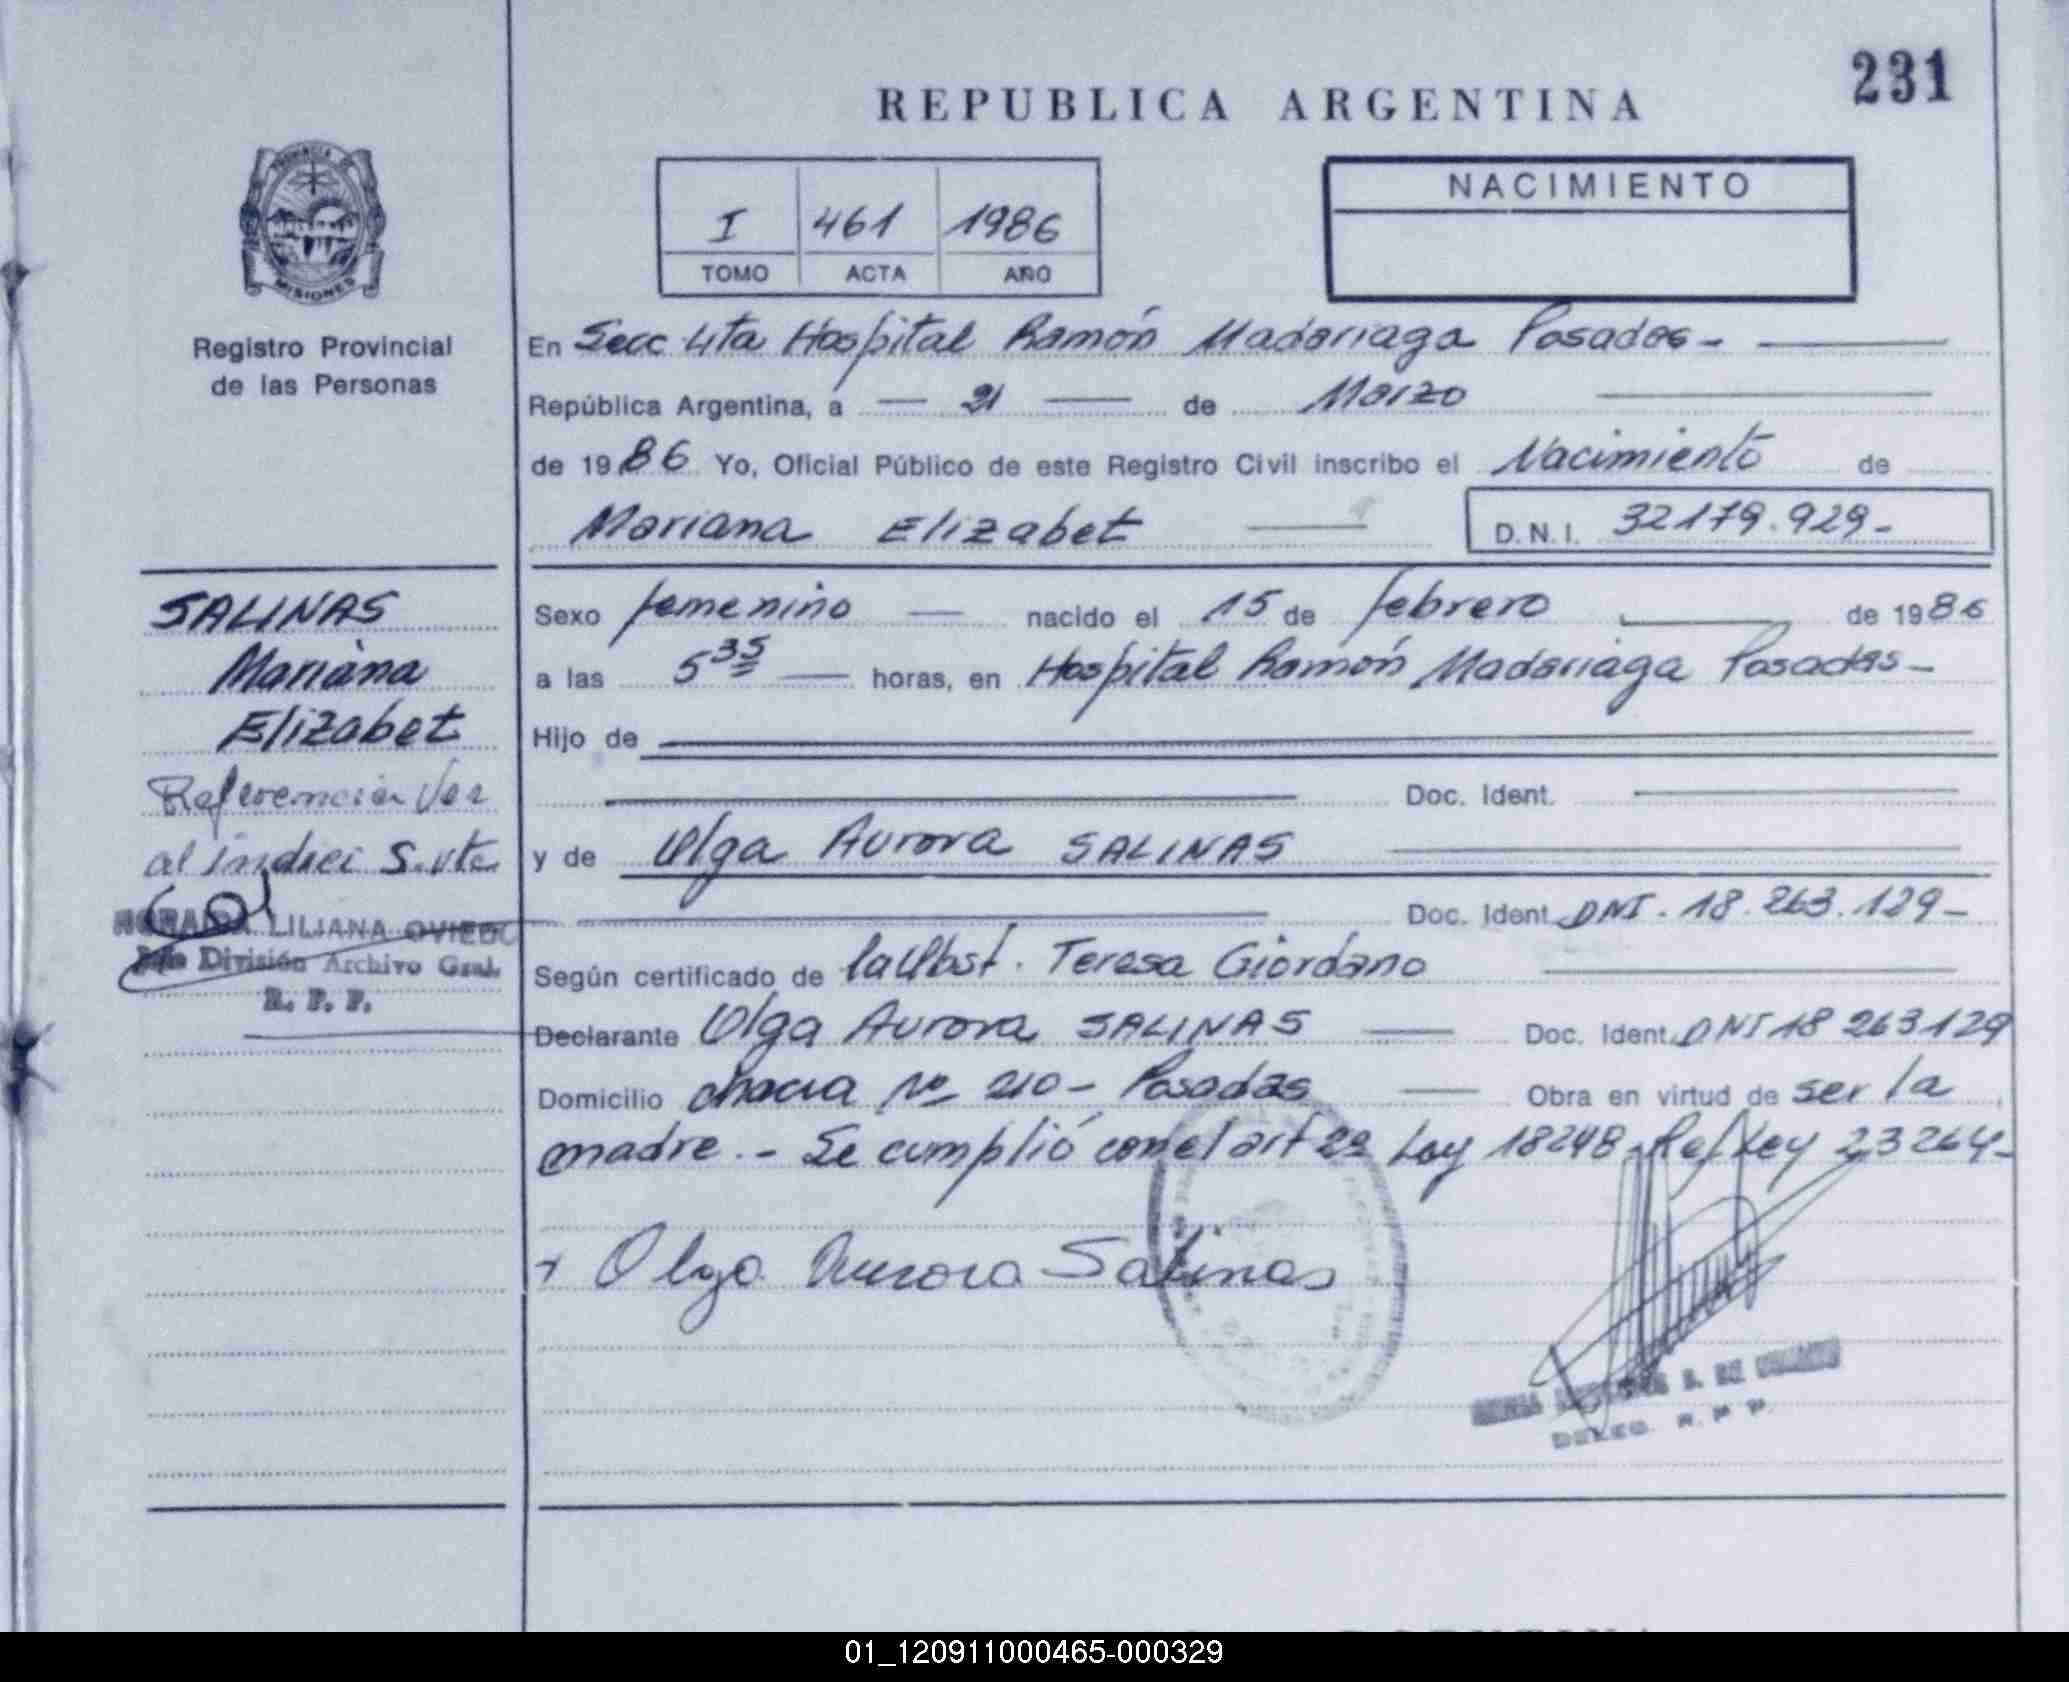 231
REPUBLICA ARGENTINA
PROVINCIA DE
MISIONES
Registro Provincial
de las Personas
I 461 1986
TOMO ACTA AÑO
NACIMIENTO
En Secc 4ta Hospital Ramón Madariaga Posadas -
República Argentina, a 21 de Marzo
de 1986 Yo, Oficial Público de este Registro Civil inscribo el Nacimiento de
Mariana Elizabet
D.N.I. 32179.929-
SALINAS
Mariana
Elizabet
Referencia Ver
al
LILIANA OVIEDO
División Archivo Gral.
R. P. P.
Sexo femenino nacido el 15 de febrero de 1986
a las 5 35 horas, en Hospital Ramón Madariaga Posadas -
Hijo de
Doc. Ident.
y de Olga Aurora SALINAS
Doc. Ident. DNI. 18.263.129-
Según certificado de la Obst. Teresa Giordano
Declarante Olga Aurora SALINAS Doc. Ident. DNI 18 263129
Domicilio chacra Nº 210 - Posadas Obra en virtud de ser la
madre.- Se cumplió con el art 2º Ley 18248 - Ref Ley 23264-
Olga Aurora Salinas
DELEG. R. P. P.
01_120911000465-000329